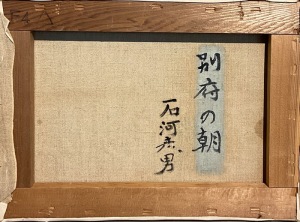 別府の朝
石河彦男